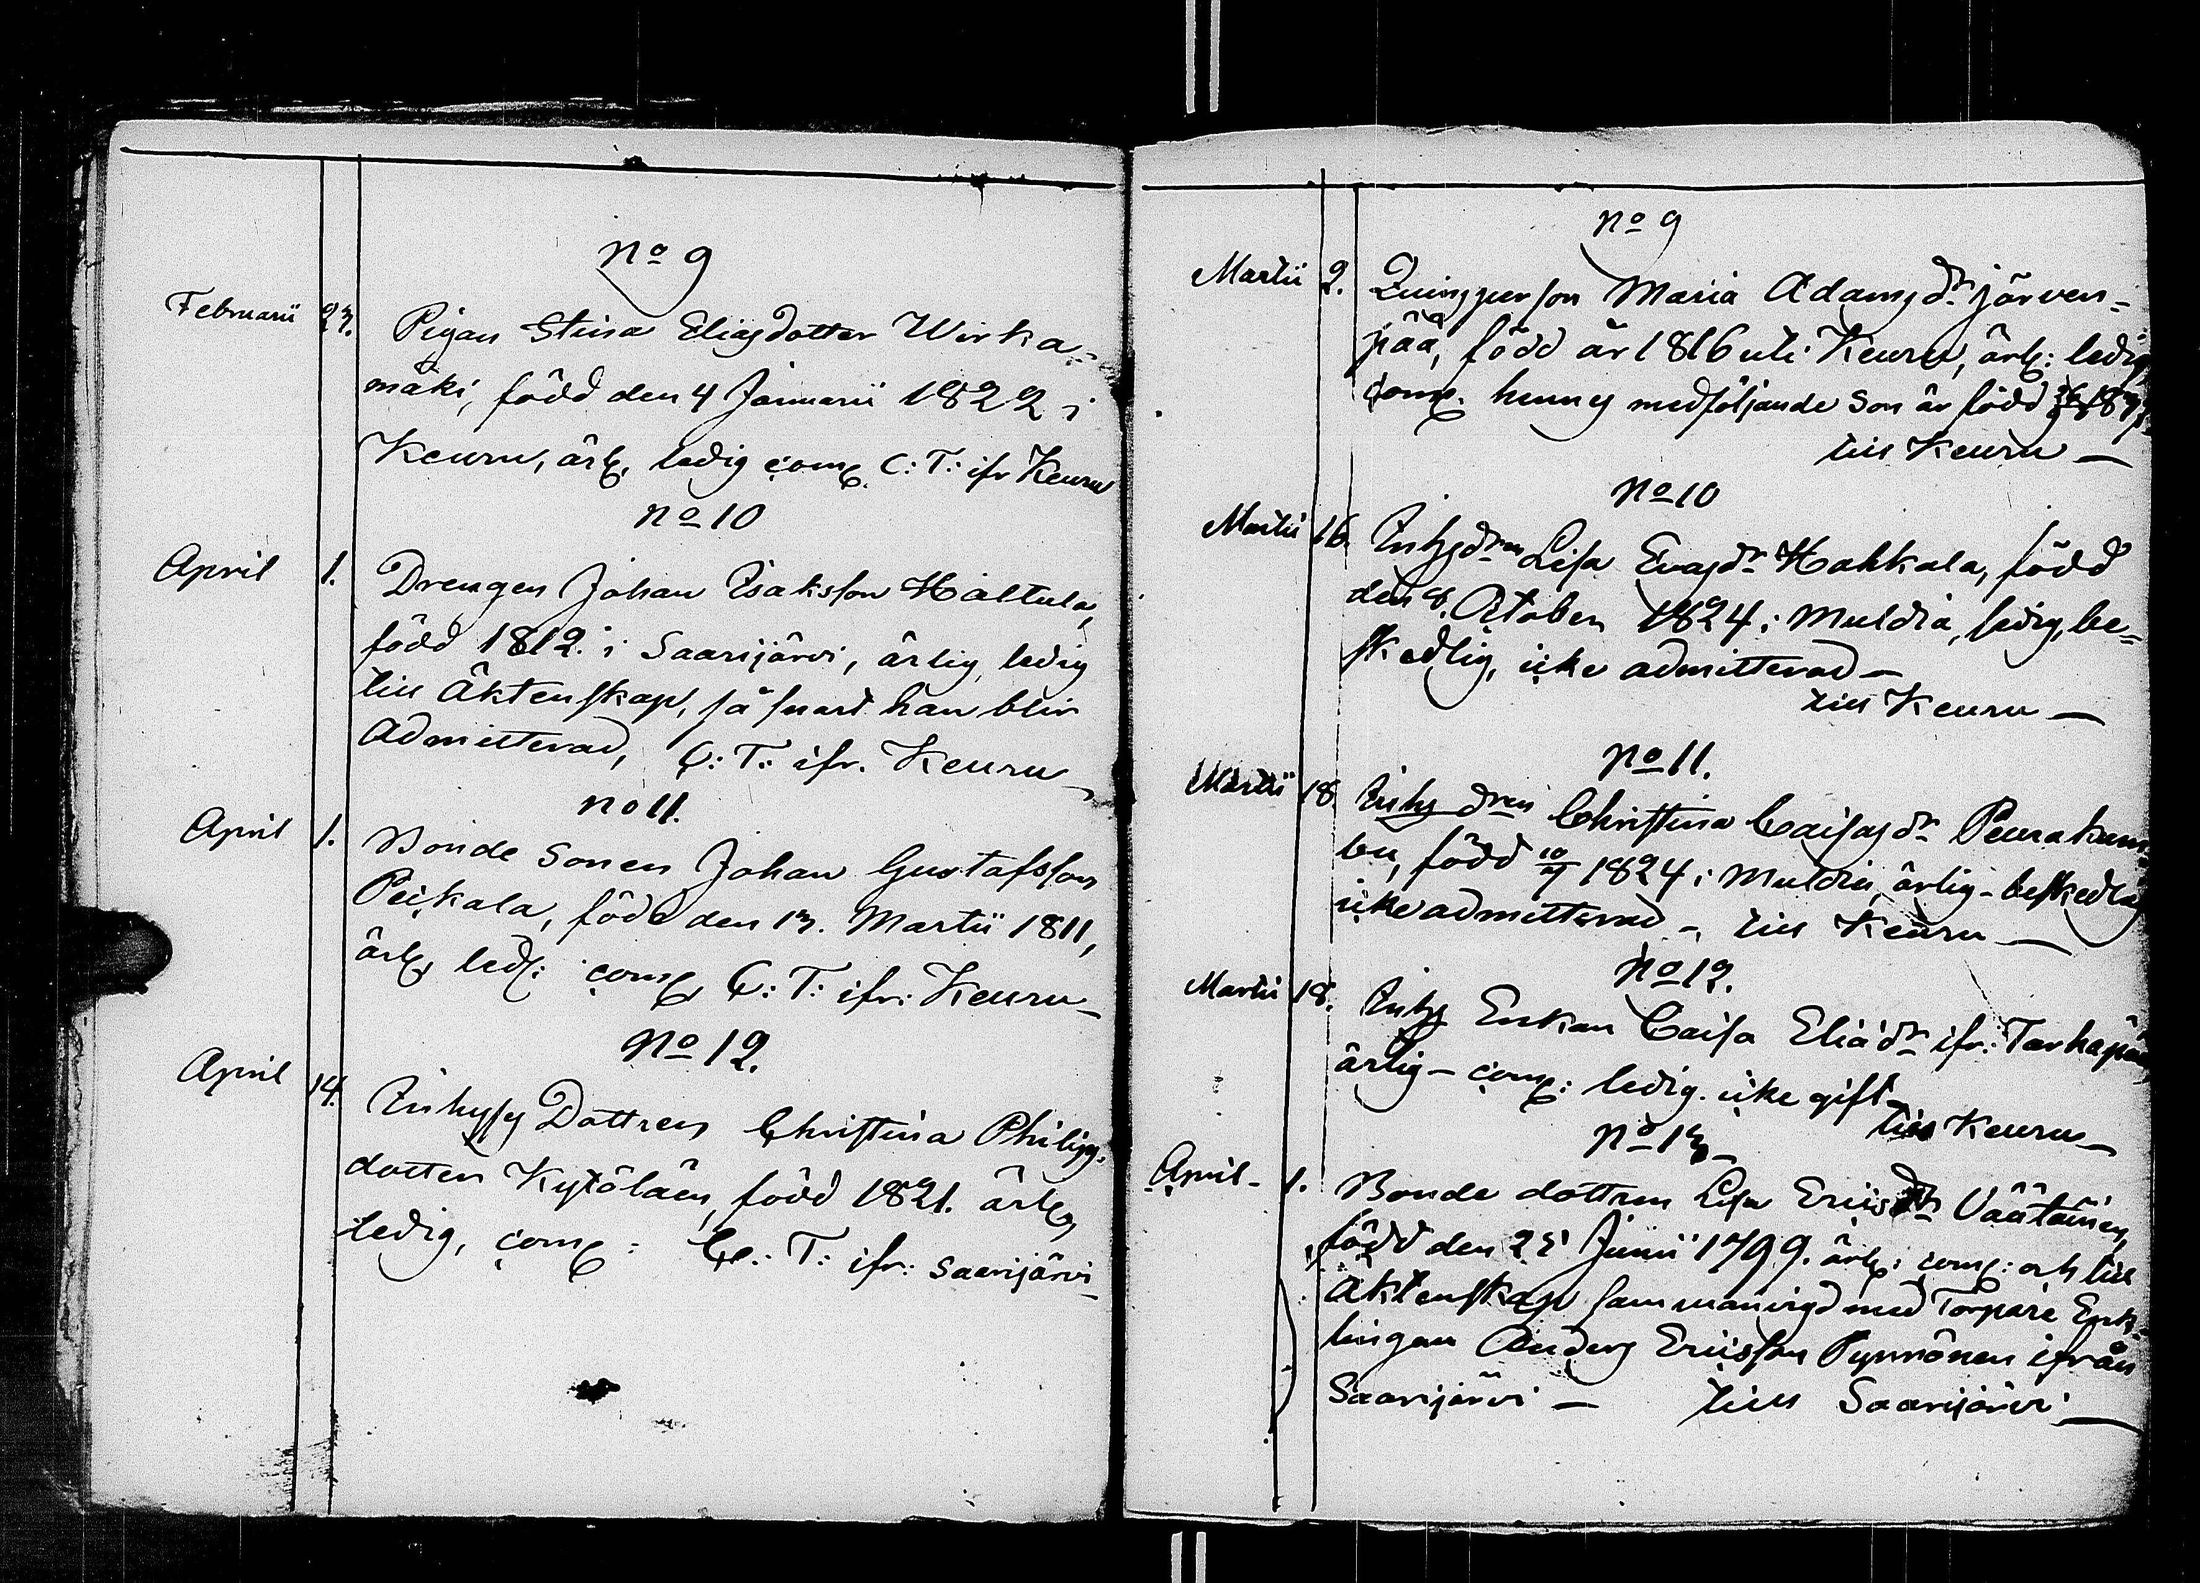 No 9
Februarii 23. Pigan Stina Eliasdotter Wirka-
mäki, född den 4 Januarii 1822 i
Keuru, ärl. ledig com. C: T: ifr Keuru
No 10
April 1. Drengen Johan Isaksson Haltula,
född 1812. i Saarijärvi, ärlig, ledig
till Äktenskap, så snart han blir
Admitterad, C: T: ifr. Keuru
No 11.
April 1. Bonde Sonen Johan Gustafsson
Peikala, född den 13. Martii 1811,
ärl. led: com C: T: ifr: Keuru
No 12.
April 14. Inhyses Dottren Christina Philipp-
dotter Kytöläin, född 1821. ärl.
ledig, com: C: T: ifr: Saarijärvi
No 9
Martii 2. Quinsperson Maria Adamsdr Järven-
pää, född år 1816 uti Keuru, ärl: ledig,
com. hennes medföljande Son är född
till Keuru
No 10
Martii 16. Inhysdren Lisa Evasdr Hahkala, född
den 8. October 1824 i Muldia, ledig, be-
skedlig, icke admitterad
till Keuru
No 11.
Martii 18. Inhysdren Christina Caisasdr Peurakum-
bu, född 10/7 1824 i Muldia, ärlig - beskedlig
icke admitterad - till Keuru
No 12.
Martii 18. Inhys Enkan Caisa Eliädr ifr: Tarhapää,
ärlig - com: ledig. icke gift
till Keuru
No 13
April - 1. Bonde dottren Lisa Ericsdr Väätäinen,
född den 25 Junii 1799. ärl: com: och till
Äktenskap sammanvigd med Torpare Enk-
lingen Anders Ericsson Pynnönen ifrån
Saarijärvi - till Saarijärvi